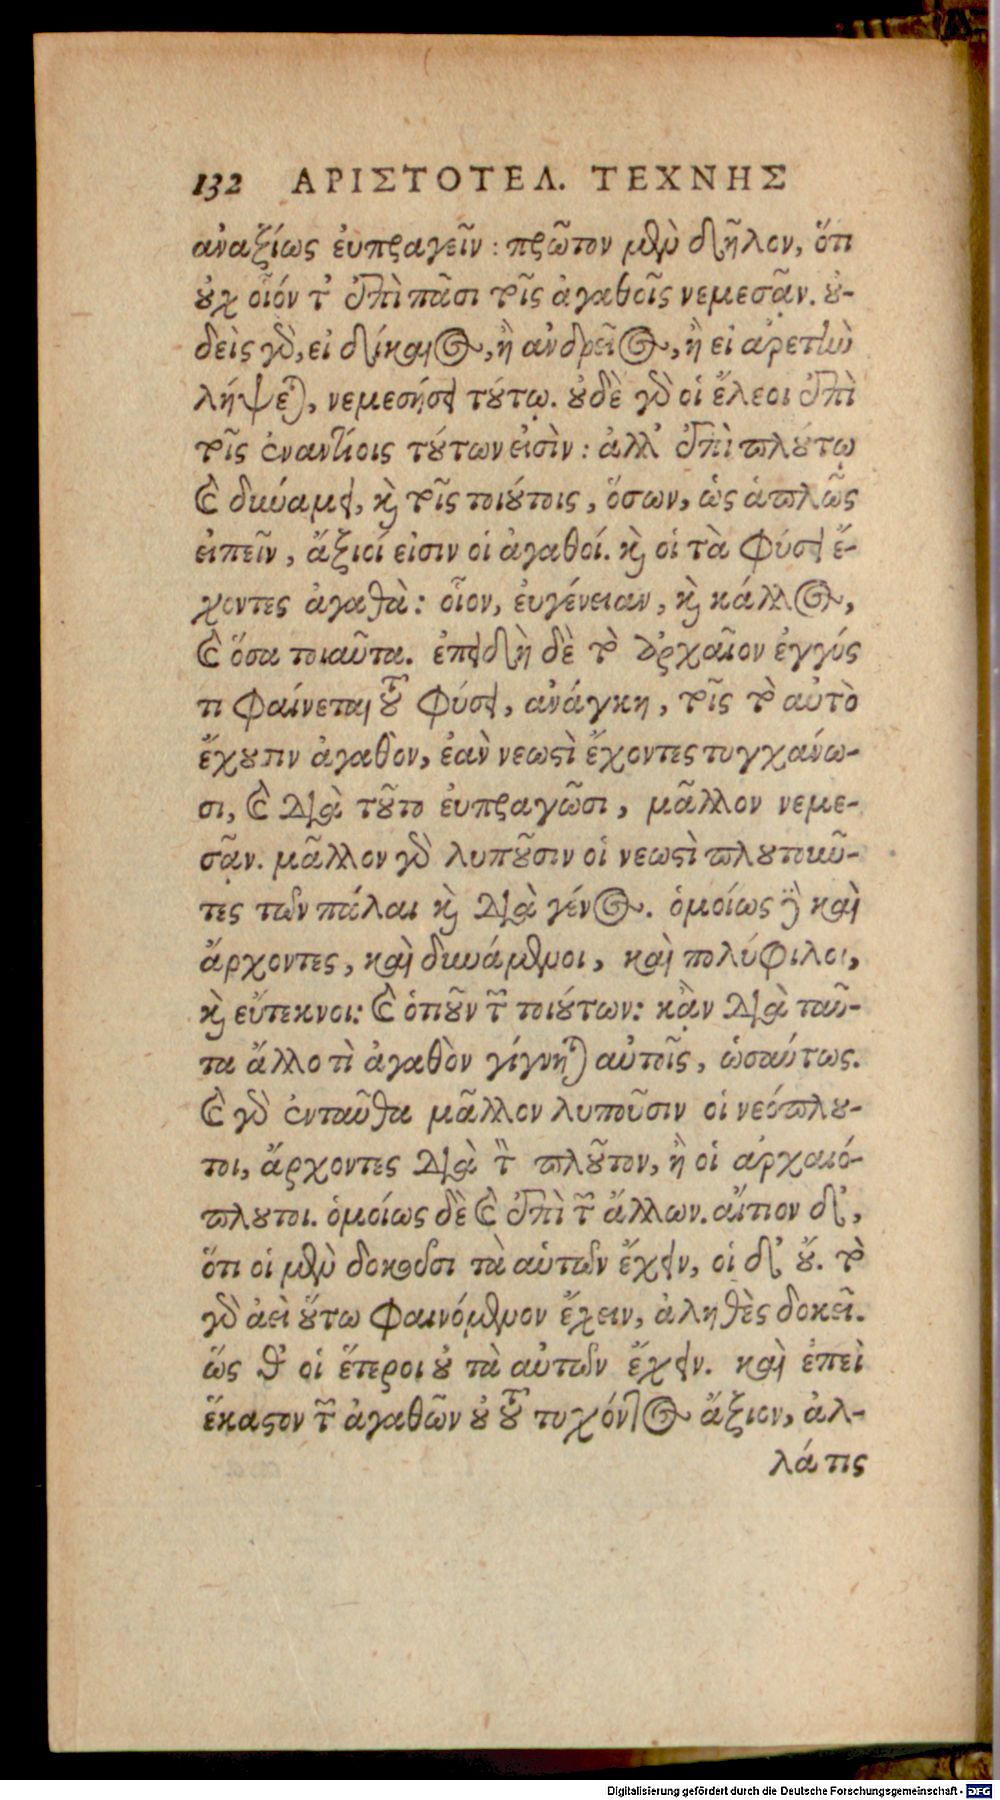 132 ΑΡΙΣΤΟΤΕΛ. ΤΕΧΝΗΣ
ἀναξίως ἐυπραγεῖν: πρῶτον μὲν δῆλον, ὅτι
οὐχ οἷόν τ' ἐπὶ πᾶσι τοῖς ἀγαθοῖς νεμεσᾷν. οὐ-
δεὶς γὰρ, εἰ δίκαιος, ἢ ἀνδρεῖος, ἢ εἰ ἀρετὴν
λήψεται, νεμεσήσει τούτῳ. οὐδὲ γὰρ οἱ ἔλεοι ἐπὶ
τοῖς ἐναντίοις τούτων εἰσὶν: ἀλλ' ἐπὶ πλούτῳ
καὶ δυνάμει, καὶ τοῖς τοιούτοις, ὅσων, ὡς ἁπλῶς
εἰπεῖν, ἄξιοί εἰσιν οἱ ἀγαθοί. καὶ οἱ τὰ φύσει ἔ-
χοντες ἀγαθὰ: οἷον, ἐυγένειαν, καὶ κάλλος,
καὶ ὅσα τοιαῦτα. ἐπειδὴ δὲ τὸ ἀρχαῖον ἐγγύς
τι φαίνεται τοῦ φύσει, ἀνάγκη, τοῖς τὸ αὐτὸ
ἔχουσιν ἀγαθὸν, ἐὰν νεωστὶ ἔχοντες τυγχάνω-
σι, καὶ διὰ τοῦτο ἐυπραγῶσι, μᾶλλον νεμε-
σᾷν. μᾶλλον γὰρ λυποῦσιν οἱ νεωστὶ πλουτοῦν-
τες τῶν πάλαι καὶ διὰ γένος. ὁμοίως δὲ καὶ
ἄρχοντες, καὶ δυνάμενοι, καὶ πολύφιλοι,
καὶ εὔτεκνοι: καὶ ὁτιοῦν τῶν τοιούτων: κἂν διὰ ταῦ-
τα ἄλλο τὶ ἀγαθὸν γίγνηται αὐτοῖς, ὡσαύτως.
καὶ γὰρ ἐνταῦθα μᾶλλον λυποῦσιν οἱ νεόπλου-
τοι, ἄρχοντες διὰ τὸν πλοῦτον, ἢ οἱ ἀρχαιό-
πλουτοι. ὁμοίως δὲ καὶ ἐπὶ τῶν ἄλλων. αἴτιον δ',
ὅτι οἱ μὲν δοκοῦσι τὰ αὑτῶν ἔχειν, οἱ δ' οὔ. τὸ
γὰρ ἀεὶ οὕτω φαινόμενον ἔχειν, ἀληθὲς δοκεῖ.
ὥς θ' οἱ ἕτεροι οὐ τὰ αὑτῶν ἔχειν. καὶ ἐπεὶ
ἕκαστον τῶν ἀγαθῶν οὐ τοῦ τυχόντος ἄξιον, ἀλ-
λά τις
Digitalisierung gefördert durch die Deutsche Forschungsgemeinschaft - DFG